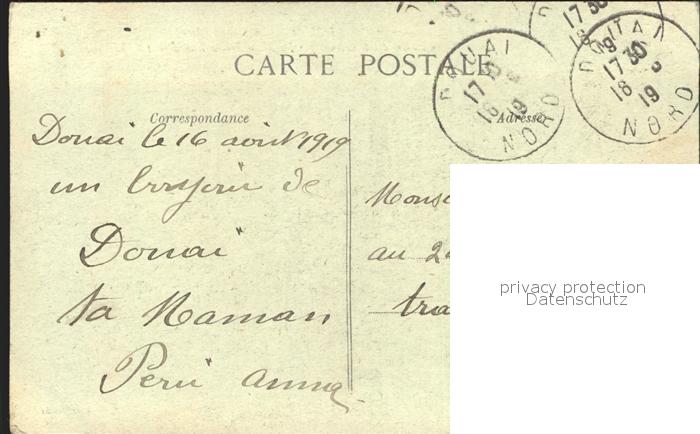 CARTE POSTALE
Correspondance
Adresse
DOUAI
17 30
18 8
19
NORD
DOUAI
17 30
18 8
19
NORD
17 30
18
9
Douai le 16 aout 1919
un bonjour de
Douai
ta Maman
Anna
au 2
tra
privacy protection
Datenschutz